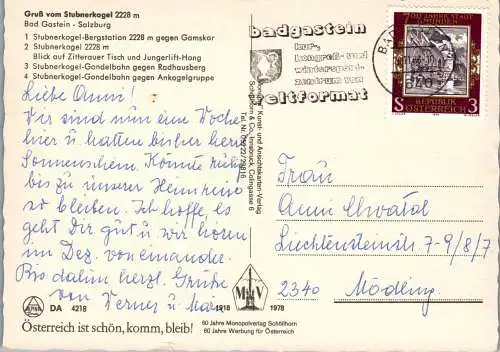 Gruß vom Stubnerkogel 2228 m
Bad Gastein - Salzburg
1 Stubnerkogel-Bergstation 2228 m gegen Gamskar
2 Stubnerkogel 2228 m
Blick auf Zitterauer Tisch und Jungerlift-Hang
3 Stubnerkogel-Gondelbahn gegen Radhausberg
4 Stubnerkogel-Gondelbahn gegen Ankogelgruppe
Liebe Anni!
Wir sind nun eine Woche
hier u hatten bisher
Sonnenschein. Könnte ruhig
bis zu unserer Heimreise
so bleiben. Ich hoffe, es
geht Dir gut u wir hören
im Dez. voneinander.
Bis dahin herzl. Grüße
von Werner u
DA 4218
Österreich ist schön, komm, bleib!
Kunst- und Ansichtskarten-Verlag
Schöllhorn & Co., Innsbruck, Colingasse 6
M V
1918 1978
60 Jahre Monopolverlag Schöllhorn
60 Jahre Werbung für Österreich
badgastein
kur-,
kongreß- und
wintersport-
zentrum von
weltformat
700 JAHRE STADT
GMUNDEN
REPUBLIK
S ÖSTERREICH 3
Frau
Anni Chvatal
Liechtensteinstr 7-9/8/7
2340 Mödling